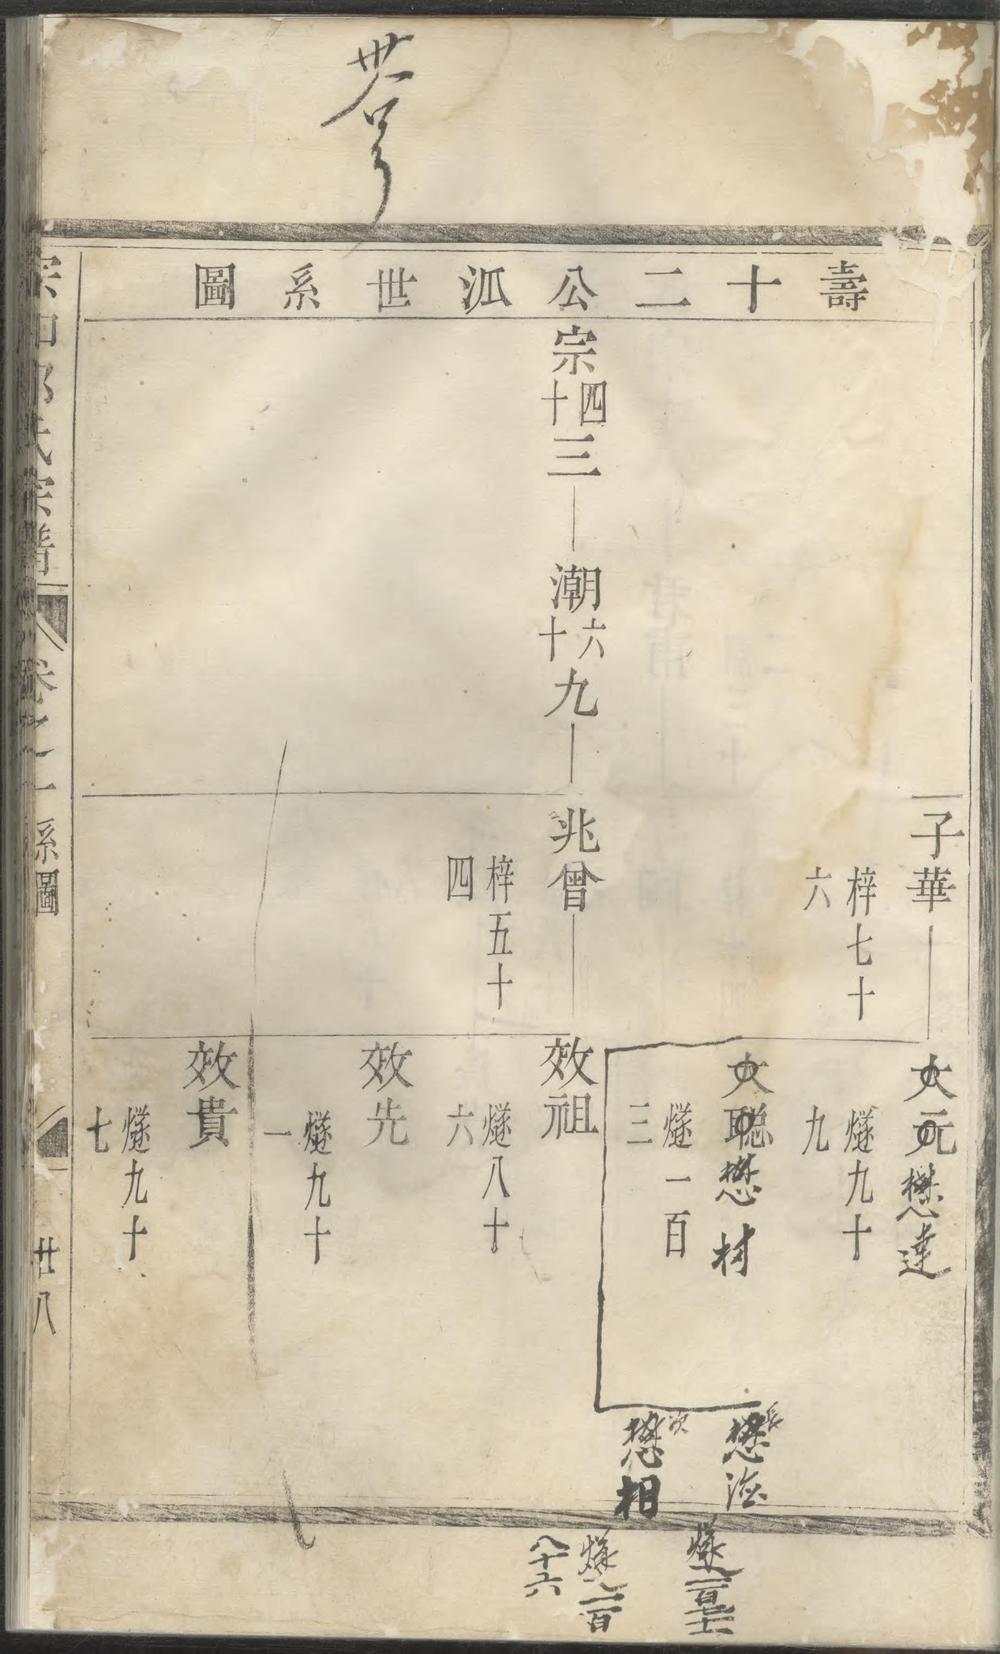 壽十二公泒世系圖
子華
梓七十六
文元
懋達
燧九十九
文聰
懋材
燧一百三
長
懋
次
懋相
宗四十三
潮六十九
兆曾
梓五十四
效祖
燧八十六
效先
燧九十一
效貴
燧九十七
氏宗譜
卷之一
系圖
廿八
八十六